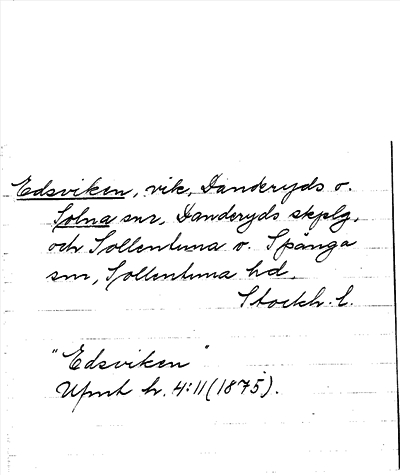 Edsviken, vik, Danderyds o.
Solna snr, Danderyds skplg,
och Sollentuna o. Spånga
snr, Sollentuna hd,
Stockh. l.
"Edsviken"
Upmh h. 4:11 (1875).